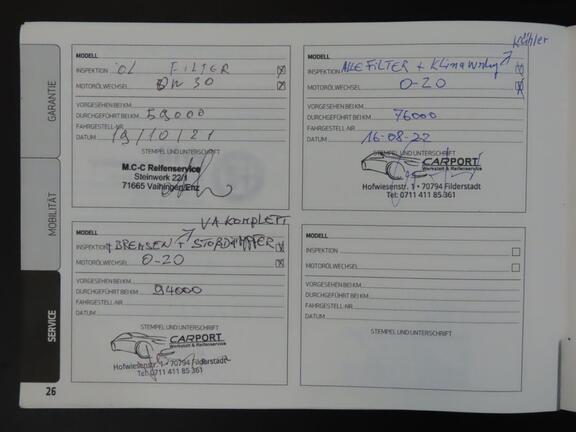 GARANTIE
MOBILITÄT
SERVICE
MODELL
INSPEKTION ÖL FILTER
MOTORÖLWECHSEL 0W30
VORGESEHEN BEI KM
DURCHGEFÜHRT BEI KM 59000
FAHRGESTELL-NR.
DATUM 19/10/21
STEMPEL UND UNTERSCHRIFT
M.C-C Reifenservice
Steinwerk 22/1
71665 Vaihingen/Enz
Kühler
MODELL
INSPEKTION ALLE FILTER + Klima
MOTORÖLWECHSEL 0-20
VORGESEHEN BEI KM
DURCHGEFÜHRT BEI KM 76000
FAHRGESTELL-NR.
DATUM 16-08-22
STEMPEL UND UNTERSCHRIFT
CARPORT
Werkstatt & Reifenservice
Hofwiesenstr. 1 • 70794 Filderstadt
Tel: 0711 411 85 361
VA KOMPLETT
MODELL
INSPEKTION + BREMSEN + STOßDÄMPFER
MOTORÖLWECHSEL 0-20
VORGESEHEN BEI KM
DURCHGEFÜHRT BEI KM 94000
FAHRGESTELL-NR.
DATUM
STEMPEL UND UNTERSCHRIFT
CARPORT
Werkstatt & Reifenservice
Hofwiesenstr. 1 • 70794 Filderstadt
Tel: 0711 411 85 361
MODELL
INSPEKTION
MOTORÖLWECHSEL
VORGESEHEN BEI KM
DURCHGEFÜHRT BEI KM
FAHRGESTELL-NR.
DATUM
STEMPEL UND UNTERSCHRIFT
26